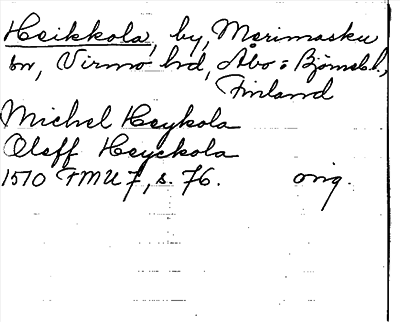 Heikkola, by, Merimasku
sn, Virmo hd, Åbo o Björneb. l.,
Finland
Michel Heykola
Oleff Heyckola
1510 FMU 7, s. 76. orig.